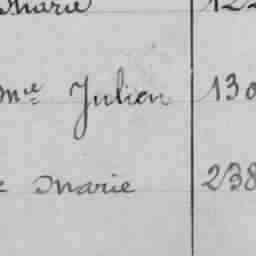 Marie 122
Mme Julien 130
Marie 238